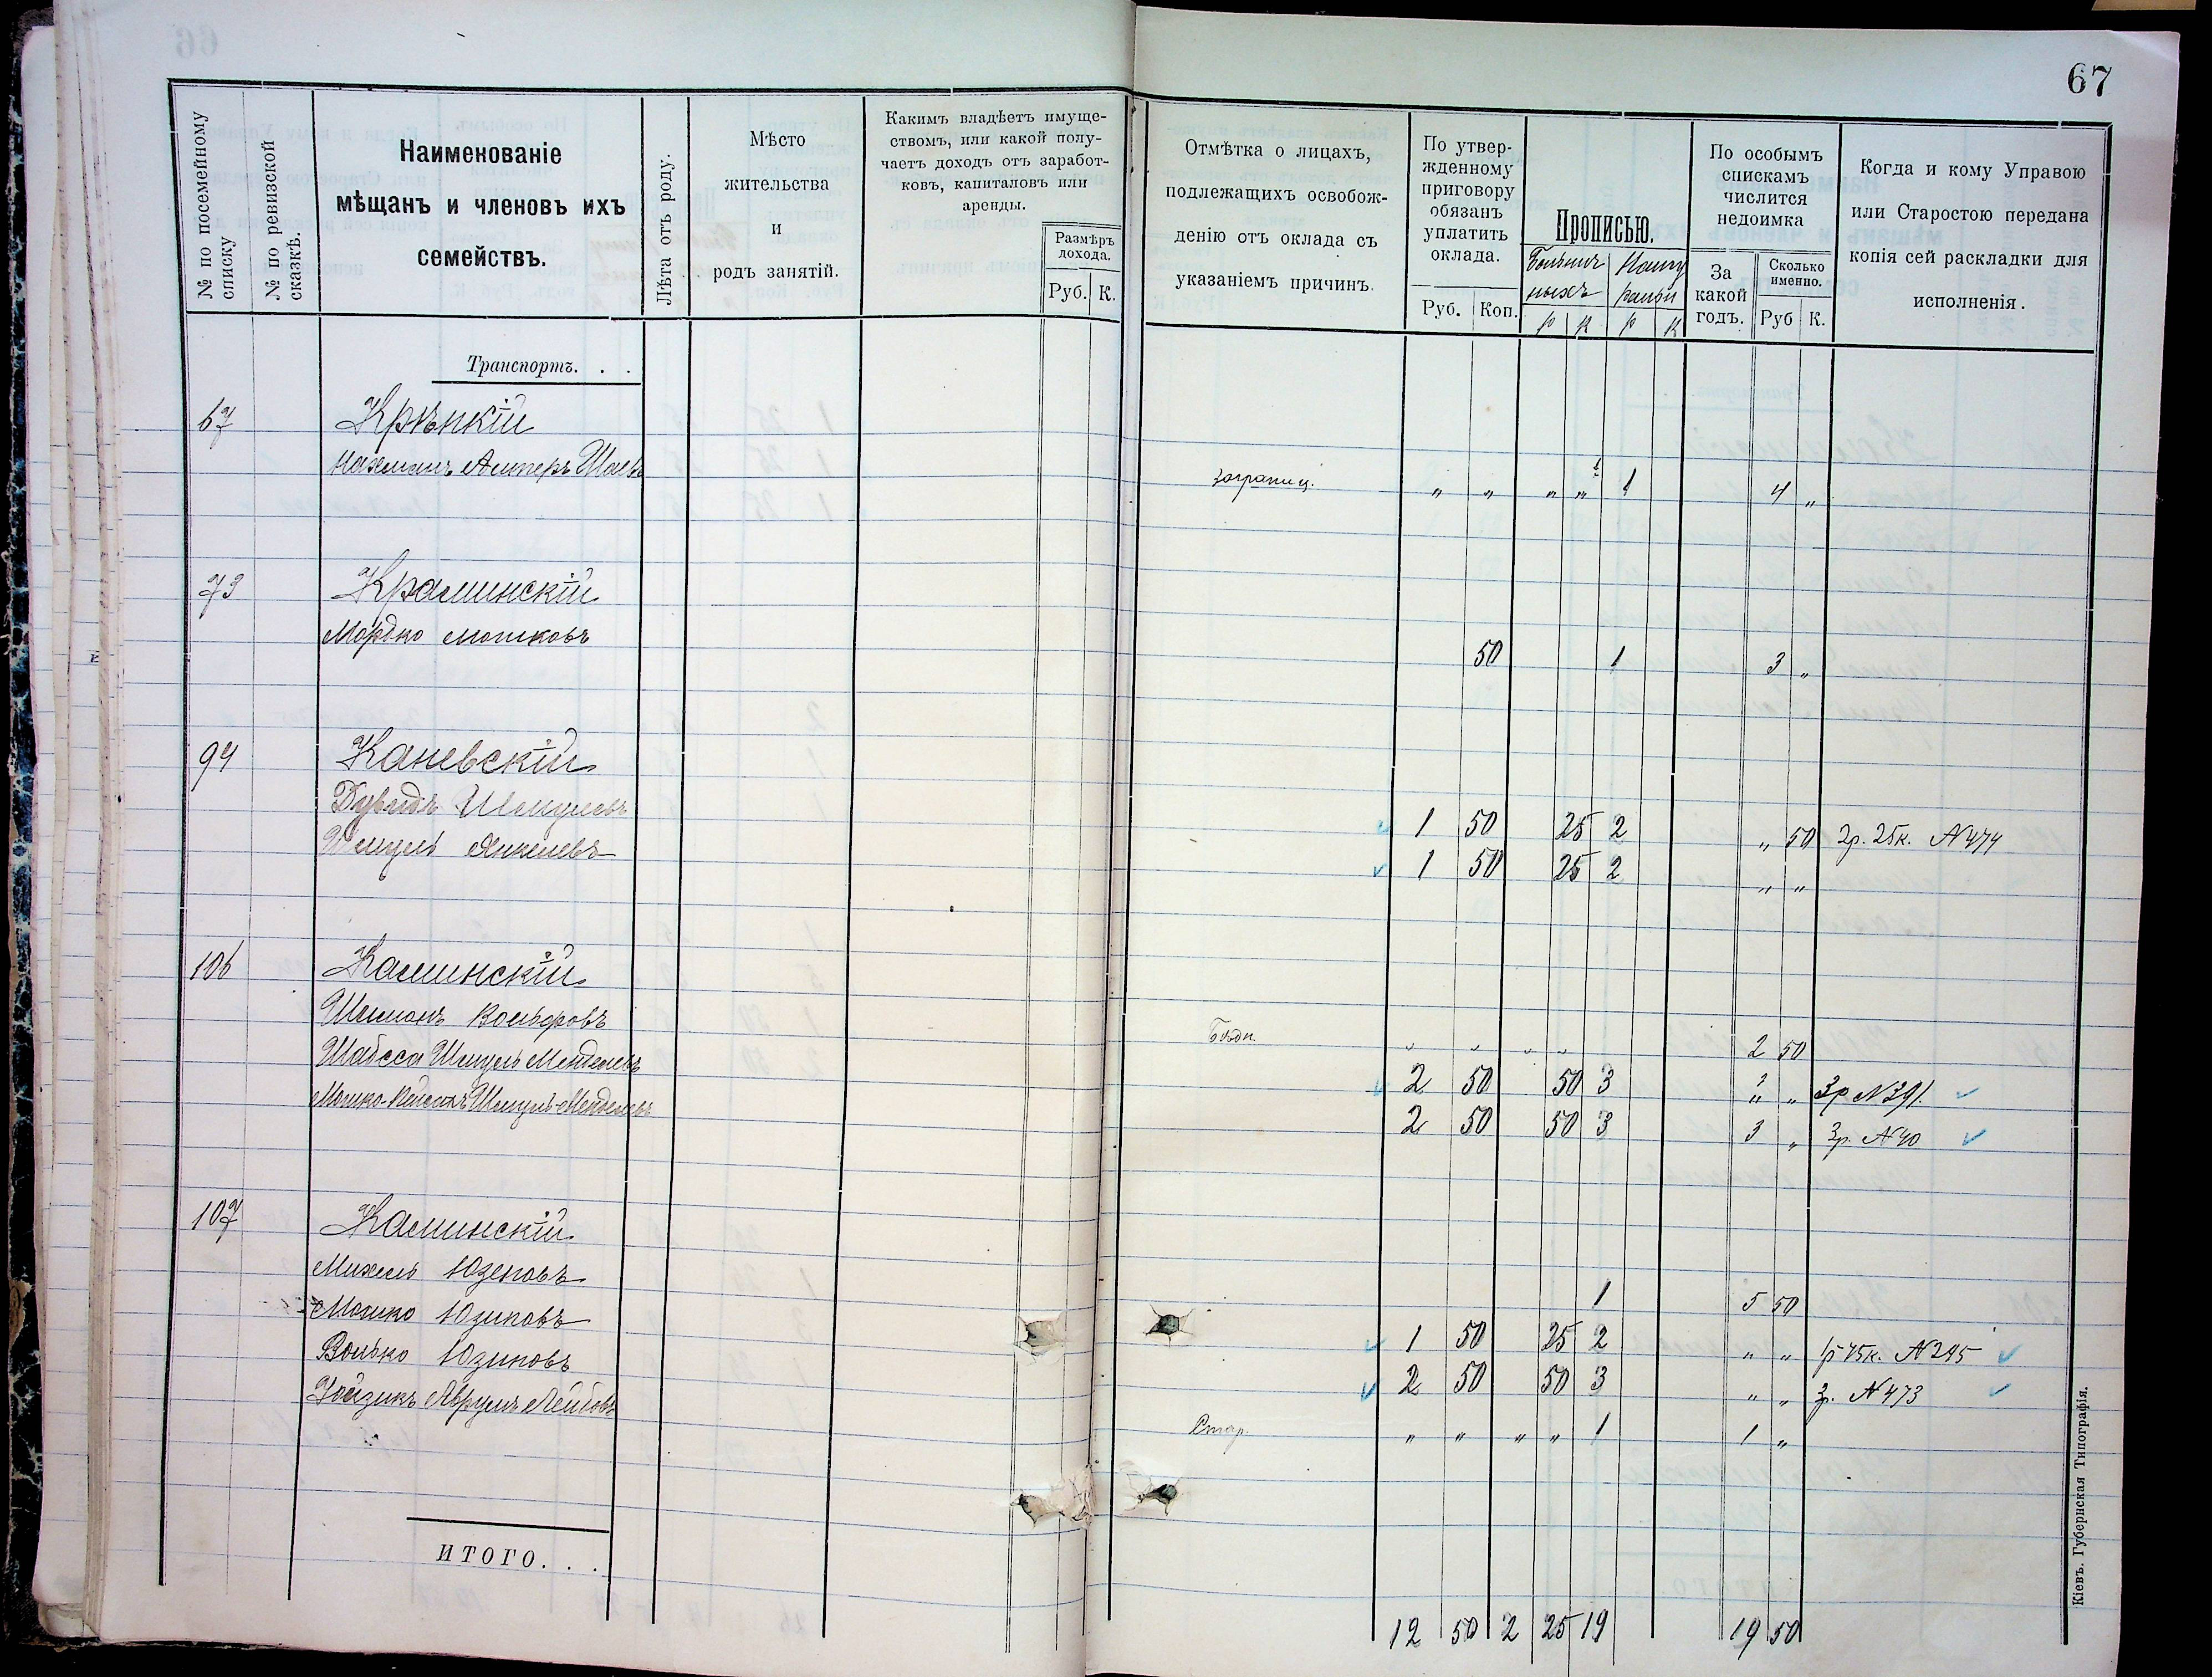 67
№ по посемейному списку
№ по ревизской сказкѣ.
Наименованіе
мѣщанъ и членовъ ихъ
семействъ.
Лѣта отъ роду.
Мѣсто
жительства
и
родъ занятій.
Какимъ владѣетъ имуще-
ствомъ, или какой полу-
чаетъ доходъ отъ заработ-
ковъ, капиталовъ или
аренды.
Размѣръ
дохода.
Руб. К.
Отмѣтка о лицахъ,
подлежащихъ освобож-
денію отъ оклада съ
указаніемъ причинъ.
По утвер-
жденному
приговору
обязанъ
уплатить
оклада.
Руб. Коп.
Прописью.
р к р к
По особымъ
спискамъ
числится
недоимка
За
какой
годъ.
Сколько
именно.
Руб К.
Когда и кому Управою
или Старостою передана
копія сей раскладки для
исполненія.
Транспортъ. . .
67 Крѣпкій
Заграниц. „ „ „ „ 1 4 „
73 Краминскій
Мордко Мошковъ 50 1 3 „
94 Каневскій
Дувидъ Шмулевъ 1 50 25 2 „ 50 2р. 25к. №474
Шмуль Янкелевъ 1 50 25 2 „ „
106 Каминскій
Шлиома Вольфовъ Бѣдн. „ „ „ „ 2 50
Шабса Шмуль Менделевъ 2 50 50 3 „ „ 3р №391.
Мошко Шмуль-Менделевъ 2 50 50 3 3 „ 3р. №40
107 Каминскій
Михель Юзеповъ 1 5 50
Мошко Юзиповъ 1 50 25 2 „ „ 1р 75к. №295
Волько Юзиповъ 2 50 50 3 „ „ 3р. №473
Аврумъ Лейбовъ Стар. „ „ „ „ 1 1 „
ИТОГО. . .
12 50 2 25 19 19 50
Кіевъ. Губернская Типографія.